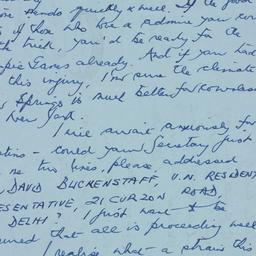 mends quickly & well. If the good
of those who love & admire you could
trick, you'd be ready for the
Games already. And if you had
this injury, I'm sure the climate
Springs is much better for
New York.
I will await anxiously for
could your Secretary just
me two lines, please, addressed
DAVID BLICKENSTAFF, U.N. RESIDENT
REPRESENTATIVE, 21 CURZON ROAD,
DELHI? I just want to be
that all is proceeding well
I realise what a strain this